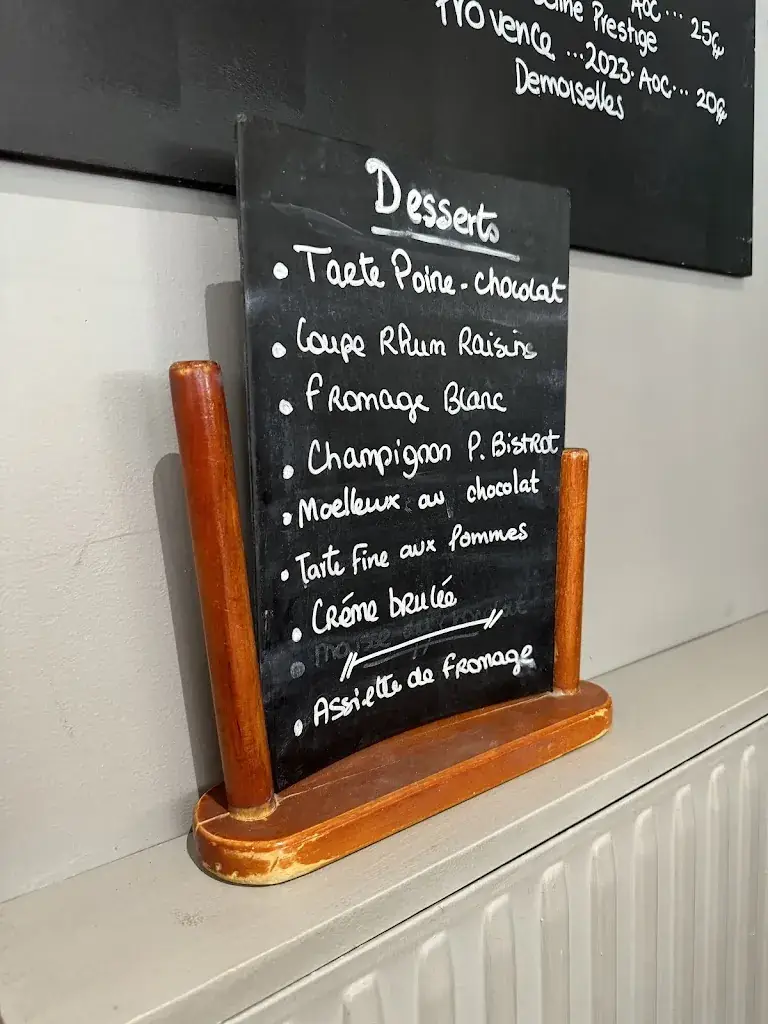 AOC... 25€
Prestige
Provence ...2023. AOC... 20€
Demoiselles
Desserts
• Tarte Poire-chocolat
• Coupe Rhum Raisins
• fromage Blanc
• Champignon P. BistRot
• Moelleux au chocolat
• Tarte fine aux Pommes
• Créme brulée
• mousse au chocolat
• Assiette de fromage